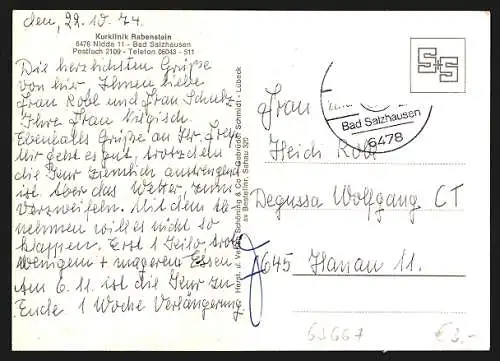 den, 22.10.74.
Kurklinik Rabenstein
6478 Nidda 11 - Bad Salzhausen
Postfach 2109 - Telefon 06043 - 511
Die herzlichsten Grüße
von hier Ihnen liebe
Frau Robl und Frau Schulz
Ihre Frau
Ebenfalls Grüße an Hr.
Mir geht es gut, trotzdem
die Kur ziemlich anstrengend
ist. Aber das Wetter, zum
Verzweifeln. Mit dem ab
nehmen will es nicht so
klappen. Erst 1 Kilo, trotz
wenigem + magerem Essen.
Am 6.11. ist die Kur zu
Ende 1 Woche Verlängerung
Herst. u. Verlag Schöning & Co · Gebrüder Schmidt · Lübeck
S+S
Bad Salzhausen
6478
Frau
Robl
Degussa Wolfgang CT
645 Hanau 11.
€ 3.-